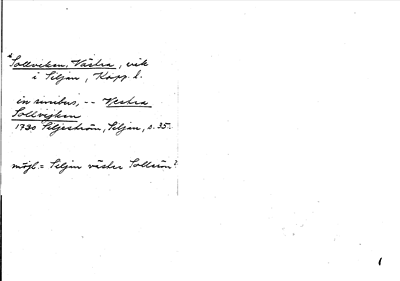 Sollviken, Västra, vik
i Siljan, Kopp. l.
in sinibus, -- Vestra
Sollvijken
1730 Siljeström, Siljan, s. 35.
möjl. = Siljan väster Sollerön?